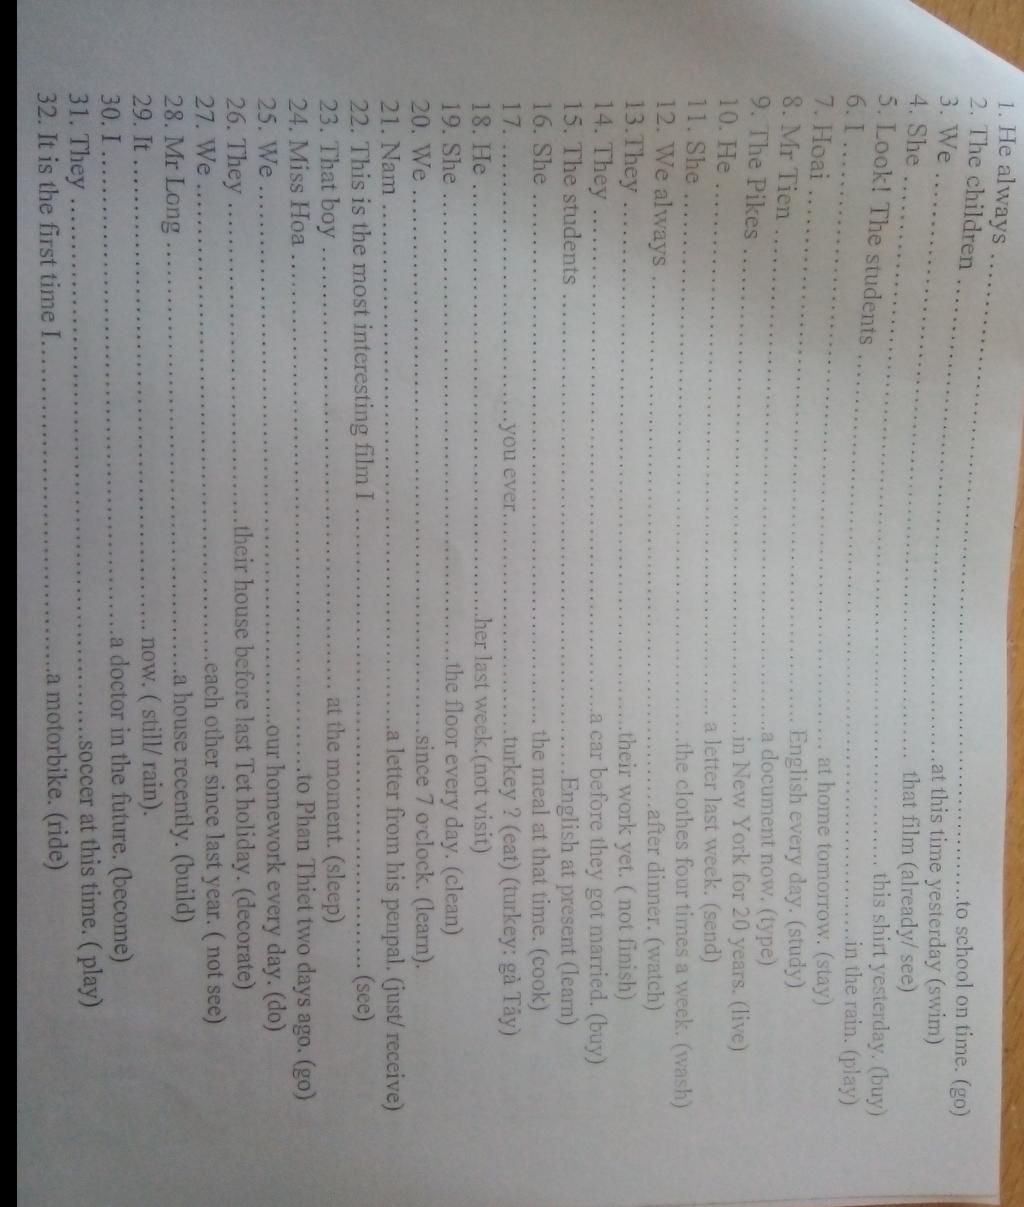 1. He always ........................................to school on time. (go)
2. The children ........................................at this time yesterday (swim)
3. We ........................................ that film (already/ see)
4. She ........................................ this shirt yesterday. (buy)
5. Look! The students ........................................in the rain. (play)
6. I ........................................ at home tomorrow. (stay)
7. Hoai ........................................ English every day. (study)
8. Mr Tien ........................................a document now. (type)
9. The Pikes ........................................in New York for 20 years. (live)
10. He ........................................ a letter last week. (send)
11. She ........................................the clothes four times a week. (wash)
12. We always ........................................after dinner. (watch)
13. They ........................................their work yet. ( not finish)
14. They ........................................a car before they got married. (buy)
15. The students ........................................English at present (learn)
16. She ........................................ the meal at that time. (cook)
17. ..............................you ever ..............................turkey ? (eat) (turkey: gà Tây)
18. He ........................................her last week.(not visit)
19. She ........................................the floor every day. (clean)
20. We ........................................since 7 o'clock. (learn).
21. Nam ........................................a letter from his penpal. (just/ receive)
22. This is the most interesting film I ........................................ (see)
23. That boy ........................................ at the moment. (sleep)
24. Miss Hoa ........................................to Phan Thiet two days ago. (go)
25. We ........................................our homework every day. (do)
26. They ........................................their house before last Tet holiday. (decorate)
27. We ........................................each other since last year. ( not see)
28. Mr Long ........................................a house recently. (build)
29. It ........................................ now. ( still/ rain).
30. I ........................................a doctor in the future. (become)
31. They ........................................soccer at this time. ( play)
32. It is the first time I ........................................a motorbike. (ride)